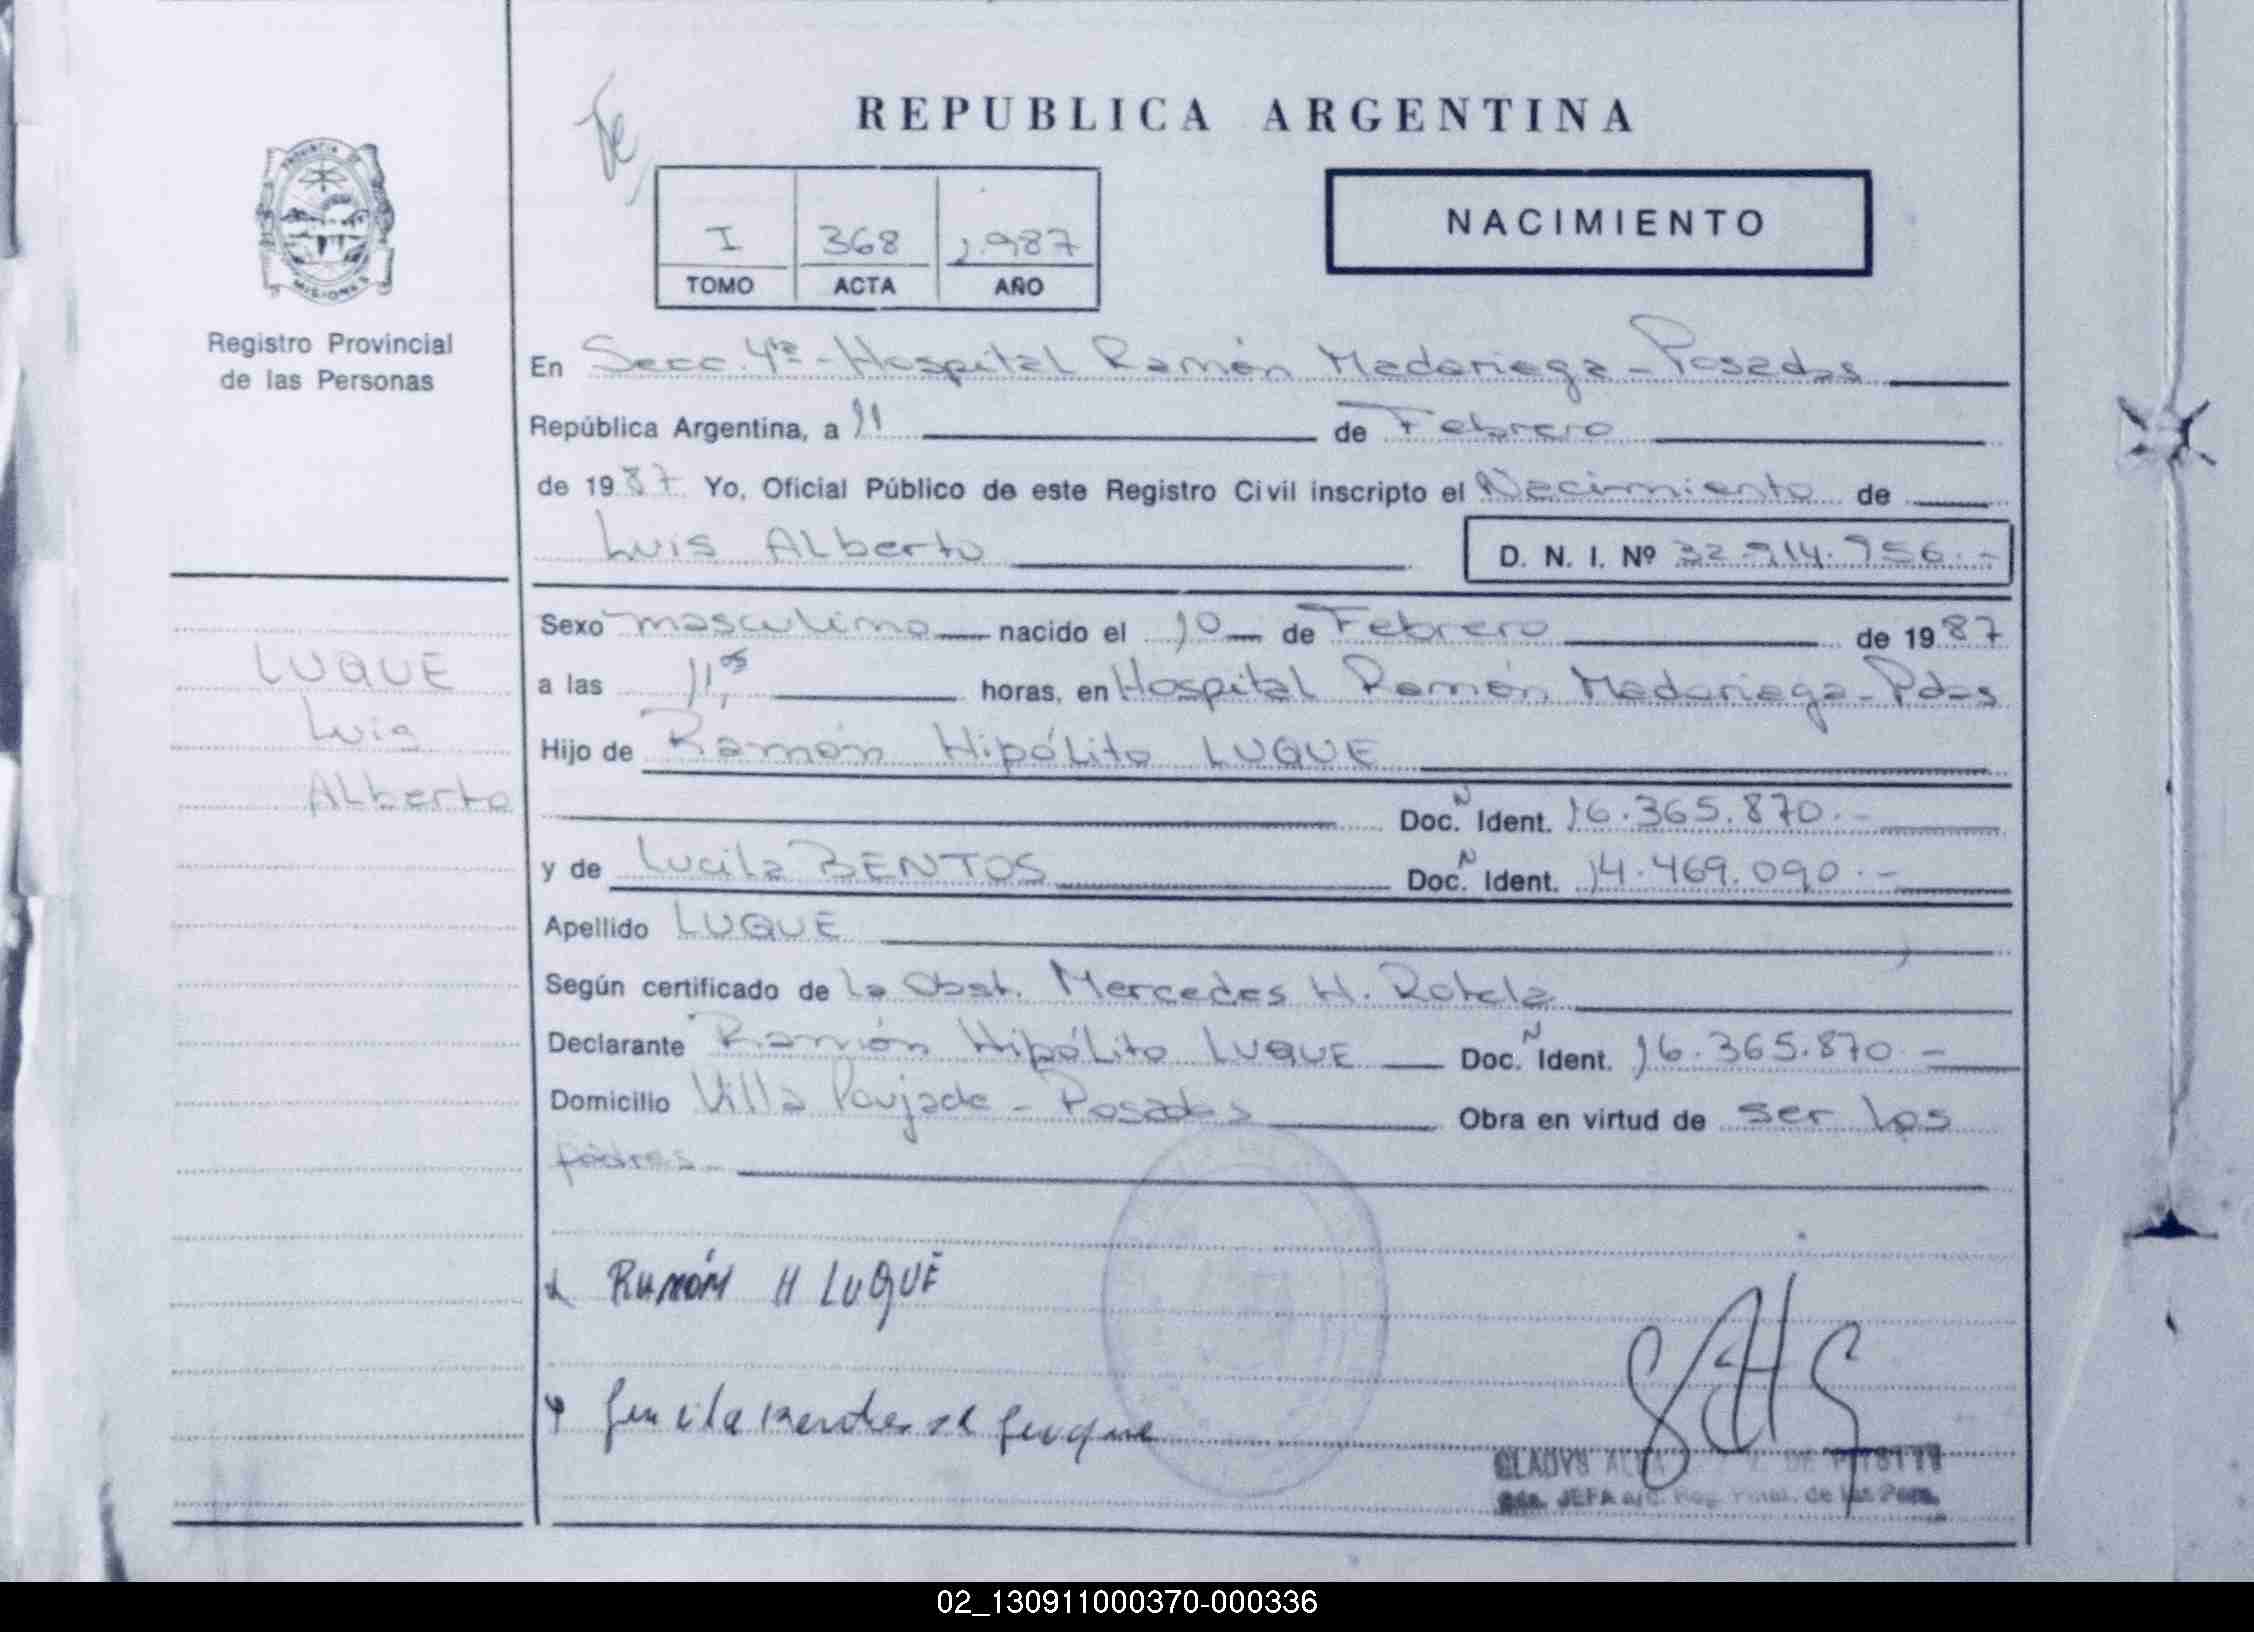 REPUBLICA ARGENTINA
I 368 1.987
TOMO ACTA AÑO
NACIMIENTO
PROVINCIA DE
MISIONES
Registro Provincial
de las Personas
En Secc. 4ta - Hospital Ramón Madariaga - Posadas
República Argentina, a 11 de Febrero
de 1987 Yo, Oficial Público de este Registro Civil inscripto el Nacimiento de
Luis Alberto D. N. I. Nº 32.914.956.-
Sexo masculino nacido el 10 de Febrero de 1987
a las 11,05 horas, en Hospital Ramón Madariaga - Pdas
Hijo de Ramón Hipólito LUQUE
Doc. N Ident. 16.365.870.-
y de Lucila BENTOS Doc. N Ident. 14.469.090.-
Apellido LUQUE
Según certificado de la Obst. Mercedes H. Rotela
Declarante Ramón Hipólito LUQUE Doc. N Ident. 16.365.870.-
Domicilio Villa Poujade - Posadas Obra en virtud de ser los
padres
LUQUE
Luis
Alberto
RAMÓN H LUQUE
Lucila Bentos de Luque
GLADYS
JEFA a/c. Reg. Pcial. de las Pers.
02_130911000370-000336